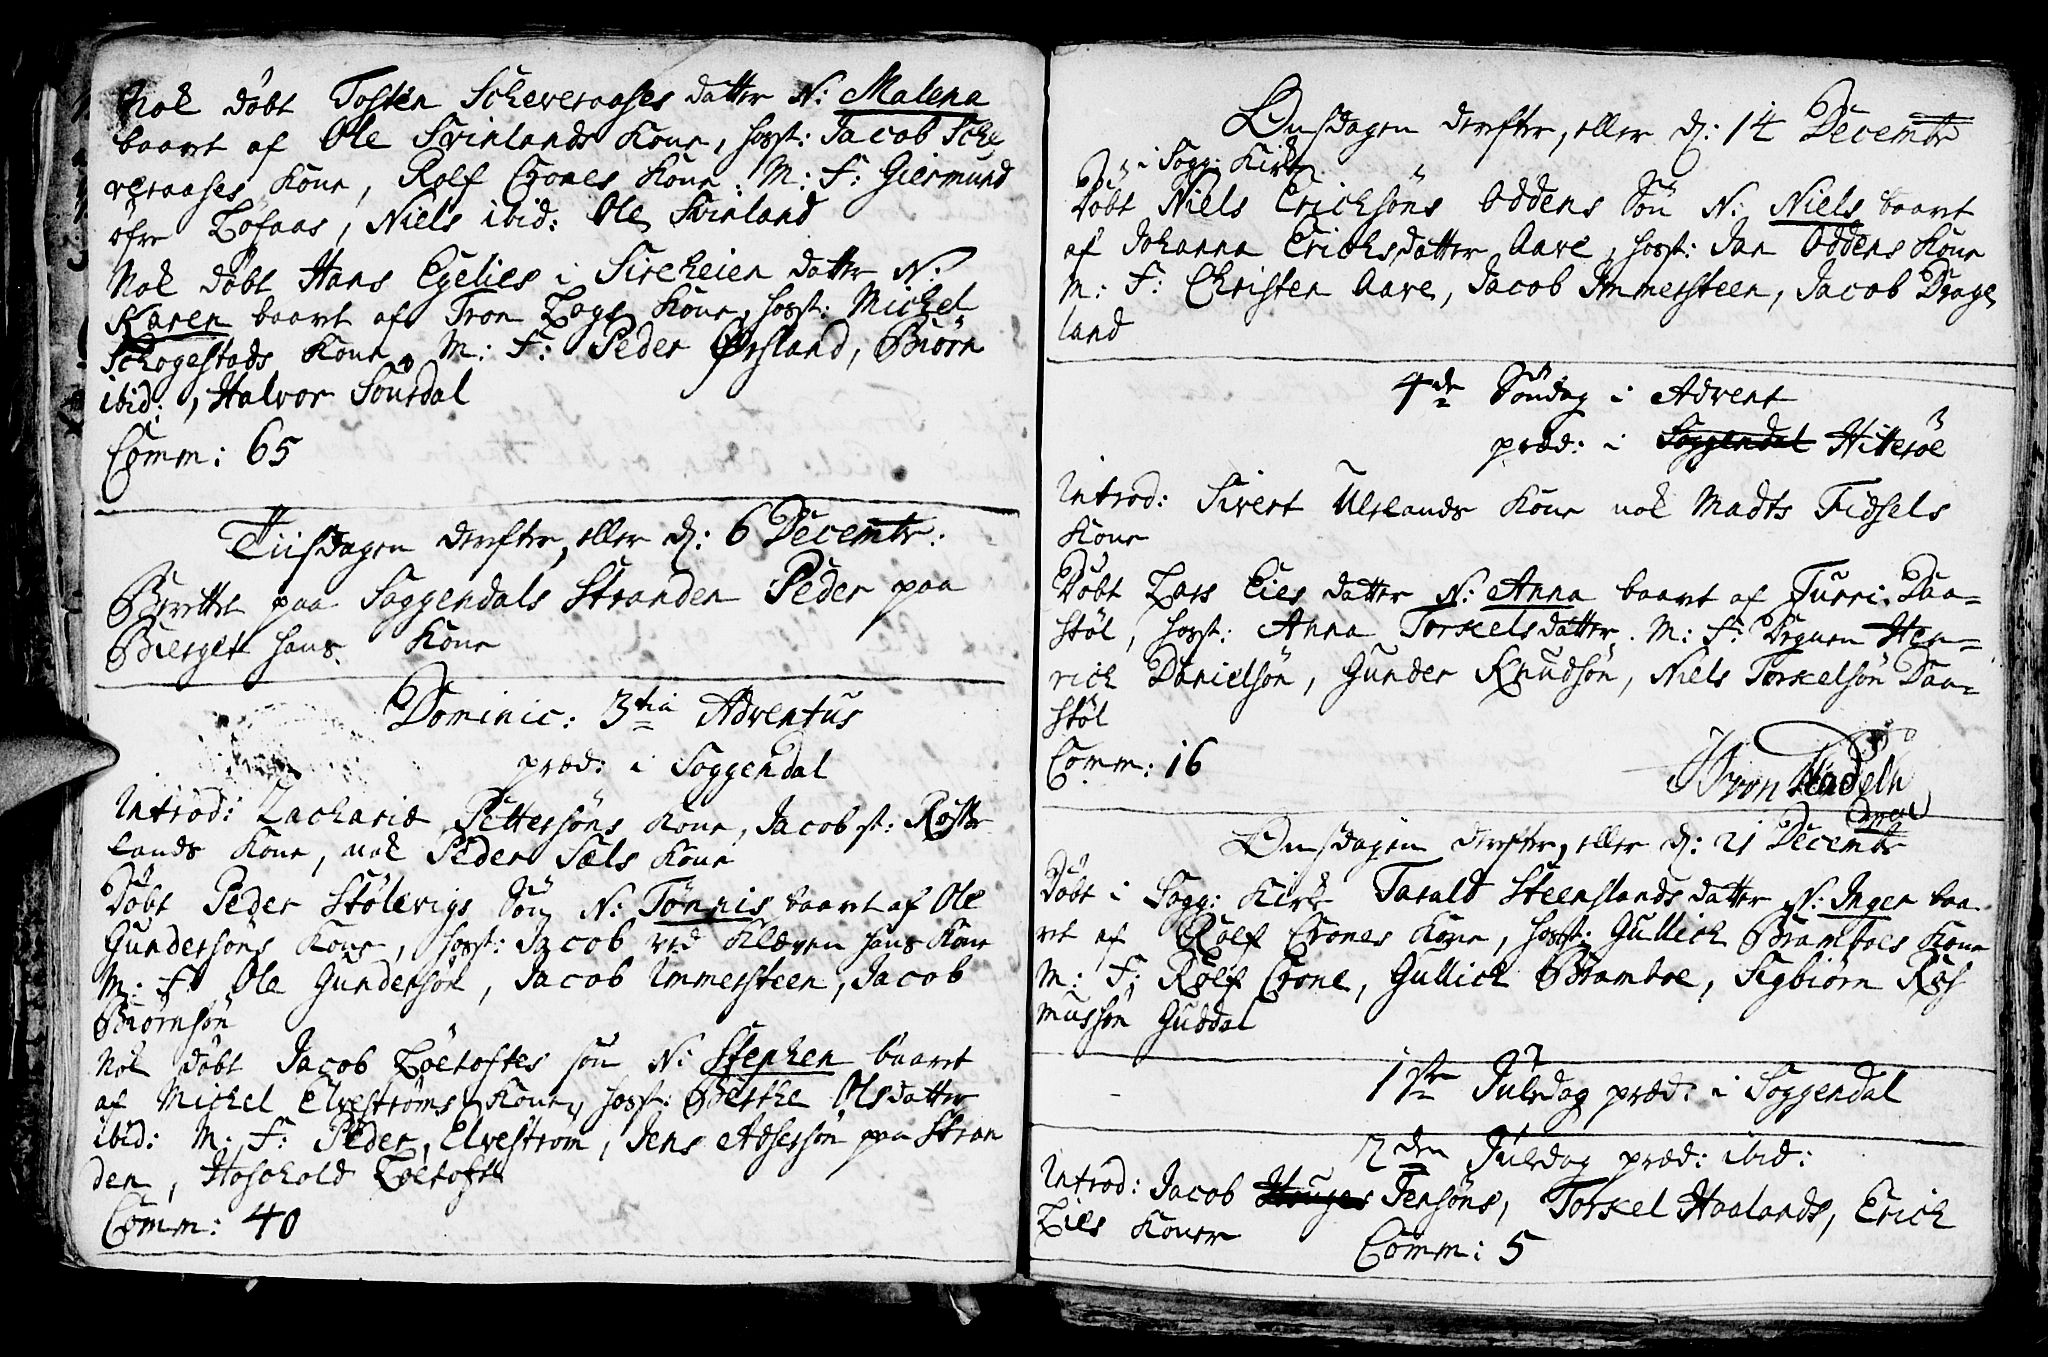 Nok döbt Tosten Scheveraases datter N: Malena
baaret af Ole Svinlands Kone, hosst: Jacob Sche
veraases Kone, Rolf Crones Kone. M: F: Giermund
öfre Löfaas, Niels ibid: Ole Svinland
Nok döbt Hans Egelies i Sireheien datter N:
Karen baaret af Tron Legs Kone, hosst: Michel
Schogestads Kone. M: F: Peder Ørsland, Biörn
ibid:, Halvor Souedal
Comm: 65
Tiisdagen derefter, eller d: 6 Decembr:
Berettet paa Soggendals Stranden Peder paa
Bierget hans Kone
Dominic: 3tia Adventus
præd: i Soggendal
Introd: Zachariæ Pettersöns Kone, Jacob st: Röste
lands Kone, nok Peder Sæls Kone
Döbt Peder Stölevigs Sön N: Tönnis baaret af Ole
Gundersöns Kone, hosst: Jacob ved Kleven hans Kone
M: F: Ole Gundersön, Jacob Immersteen, Jacob
Biörnsön
Nok döbt Jacob Löetoftes sön N: Stephen baaret
af Michel Elveströms Kone, hosst: Berthe Olsdatter
ibid: M: F: Peder Elveström, Jens Adsersön paa Stran
den, Hoskold Löetofte
Comm: 40
Onsdagen derefter, eller d: 14 Decembr
i Sogg: Kirke
Döbt Niels Ericksöns Oddens Sön N: Niels baaret
af Johanna Erichsdatter Aare, hosst: Jan Oddens Kone
M: F: Christen Aare, Jacob Immersteen, Jacob Drage
land
4de Söndag i Advent
præd: i Soggendal Hitteröe
Introd: Sivert Ulelands Kone nok Madts Fidsels
Kone
Döbt Lars Eies datter N: Anna baaret af Turri Daa-
stöl, hosst: Anna Torkelsdatter. M: F: Degnen Hen-
rich Danielsön, Gunder Knudsön, Niels Torkelsön Daa-
stöl
Comm: 16
von Hadeln
Onsdagen derefter, eller d: 21 Decembr
Döbt i Sogg: Kirke Tarald Steenslands datter N: Inger baa
ret af Rolf Crones Kone, hosst: Gullich Bramboes Kone
M: F: Rolf Crone, Gullich Bramboe, Sigbiörn Ras
mussön Guddal
1ste Juledag præd: i Soggendal
2den Juledag præd: ibid:
Introd: Jacob Jensöns, Torkel Haalands, Erich
Lies Koner
Comm: 5